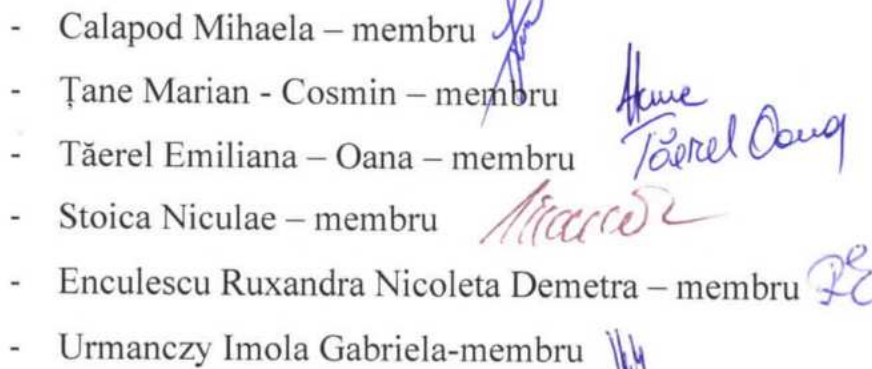 - Calapod Mihaela – membru
- Țane Marian - Cosmin – membru
- Tăerel Emiliana – Oana – membru Tăerel Oana
- Stoica Niculae – membru
- Enculescu Ruxandra Nicoleta Demetra – membru
- Urmanczy Imola Gabriela-membru